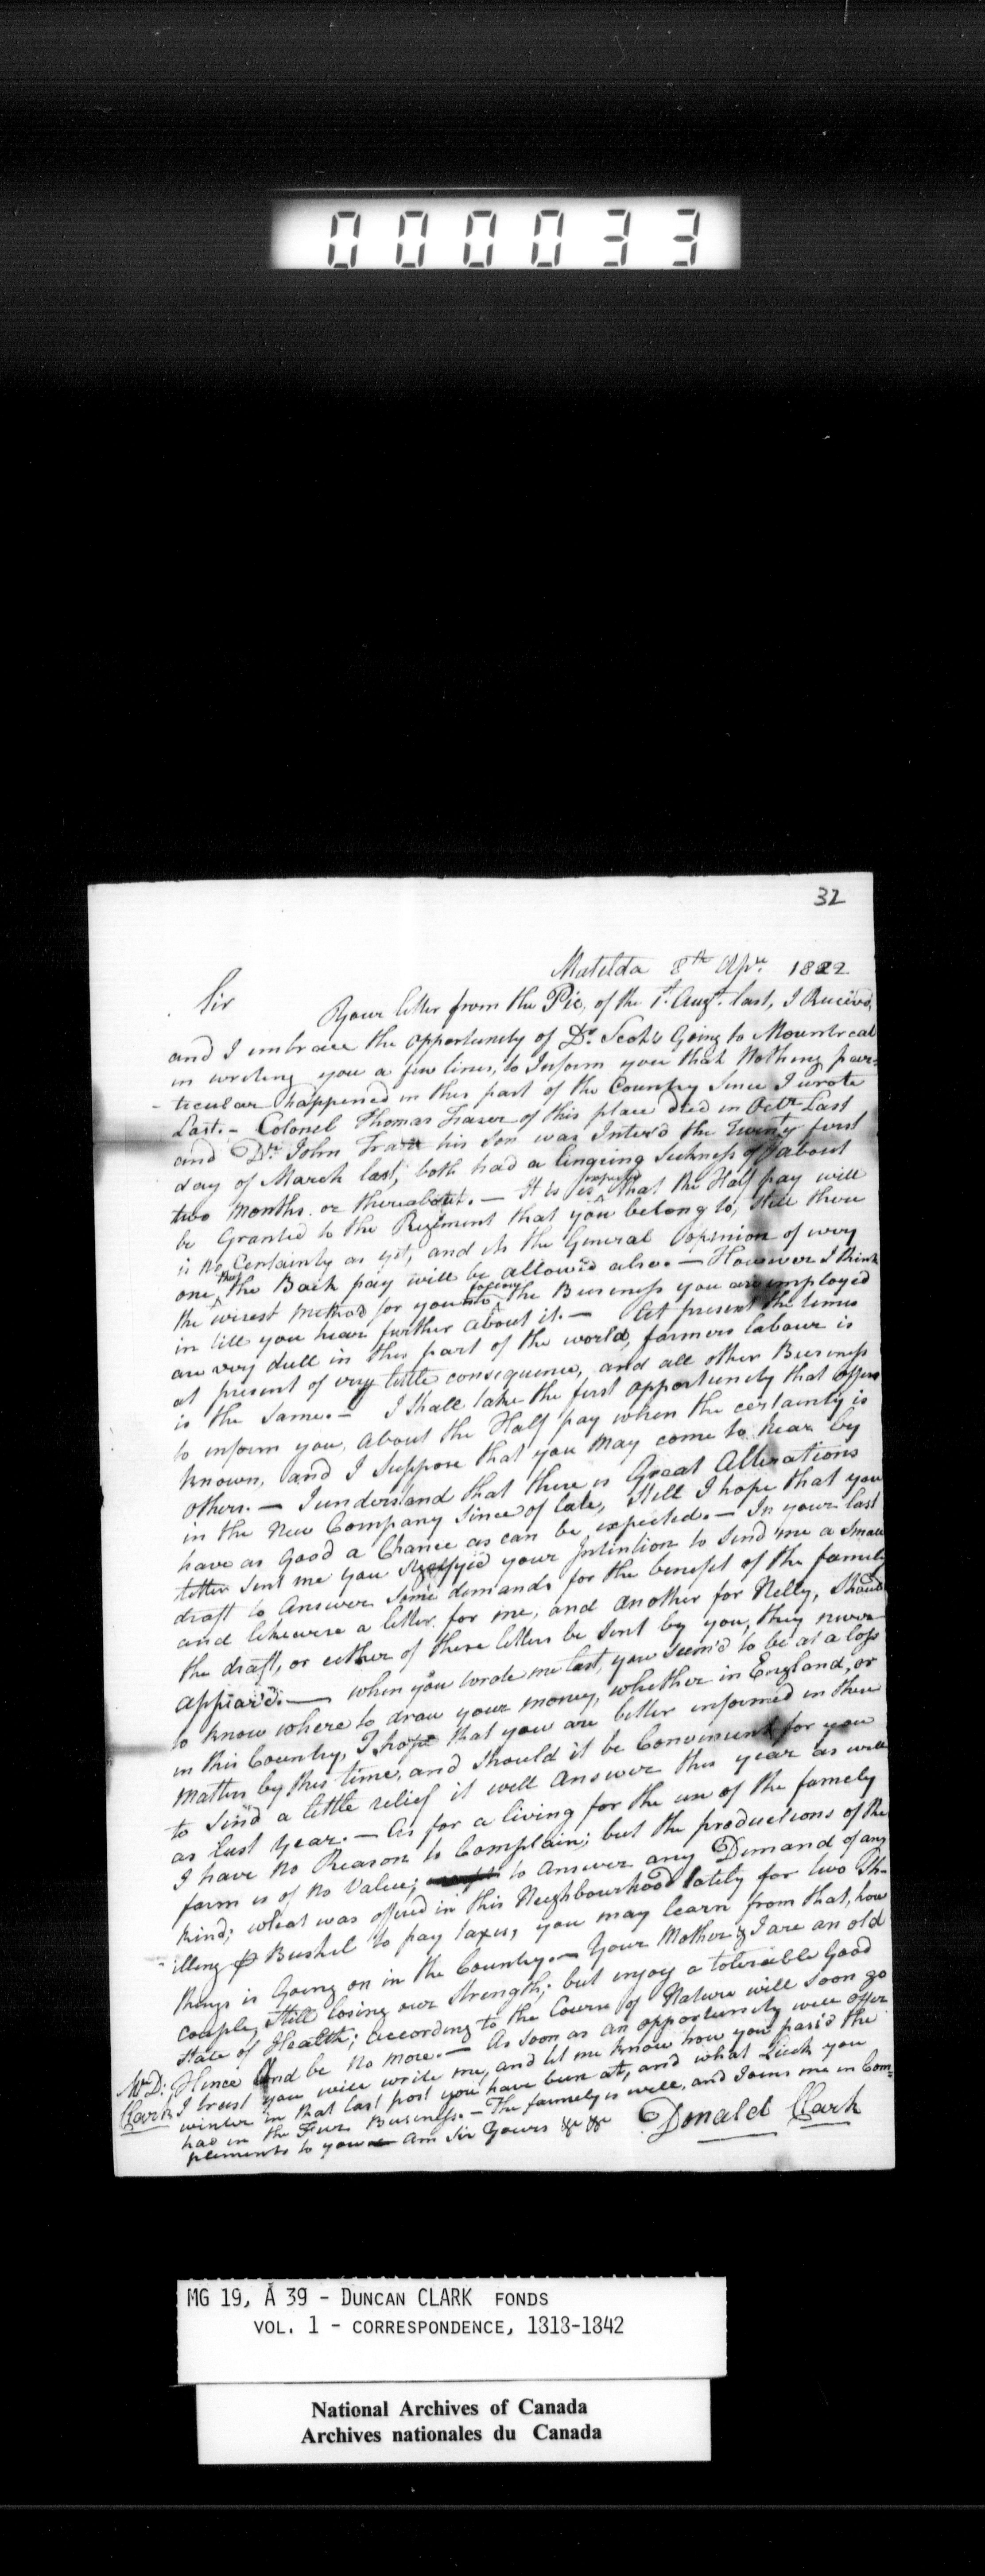 000033
32
Matilda 8th Apr. 1822
Sir
Your letter from the Pic, of the 1st. Augt. last, I Received,
and I embrace the opportunity of Dr. Scots Going to Mountreal
in writing you a few lines, to Inform you that Nothing par-
-ticular happened in this part of the Country Since I wrote
Last. - Colonel Thomas Fraser of this place died in Octr Last
and Dr. John his Son was Inter'd the Twenty first
day of March last, both had a lingering Sickness of about
two Months. or thereabout. - It is expected that the Half pay will
be Granted to the Regiment that you belong to, still there
is no Certainty as yet, and its the General Oppinion of every
one, that the Back pay will be allowed also. - However I think
the wisest method for you the Business you are employed
in till you hear further about it. - At present the times
are very dull in this part of the world, farmers labour is
at present of very little consequence, and all other Business
is the Same. - I Shall take the first opportunity that offers
to inform you, about the Half pay when the certainty is
Known, and I Suppose that you may come to hear by
Others. - I understand that there is Great Alterations
in the New Company Since of late, Still I hope that you
have as Good a Chance as can be expected. - In your last
letter Sent me you your Intintion to Send me a Small
draft to Answer Some demands for the benefit of the family
and likewise a letter for me, and another for Nelly, Should
the draft, or either of these letters be Sent by you, they never
appiar'd. - when you wrote me last, you Seem'd to be at a loss
to know where to draw your money, whether in England, or
in this Country, I hope that you are better informed in these
Matters by this time, and Should it be Convinient for you
to Sind a little relief it will answer this year as well
as last year. - As for a living for the use of the famely
I have no Reason to Complain; but the productions of the
farm is of no Value; to Answer any Demand of any
Kind; wheat was offered in this Neighbourhood lately for two Sh-
-illing P Bushel to pay taxes, you may learn from that, how
things is Going on in the Country. - Your Mother & I are an old
couple, Still losing our Strength; but enjoy a tolerable Good
State of Health; according to the Course of Nature will soon go
Hence And be No more. - As soon as an opportunity will offer
Mr D: Clark
I trust you will write me, and let me know how you pass'd the
winter in that last post you have been at, and what Luck you
had in the Fur Business. - The famely is well, and Joins me in Com-
pliments to you Am Sir Yours &c &c Donald Clark
MG 19, A 39 - DUNCAN CLARK FONDS
VOL. 1 - CORRESPONDENCE, 1813-1842
National Archives of Canada
Archives nationales du Canada